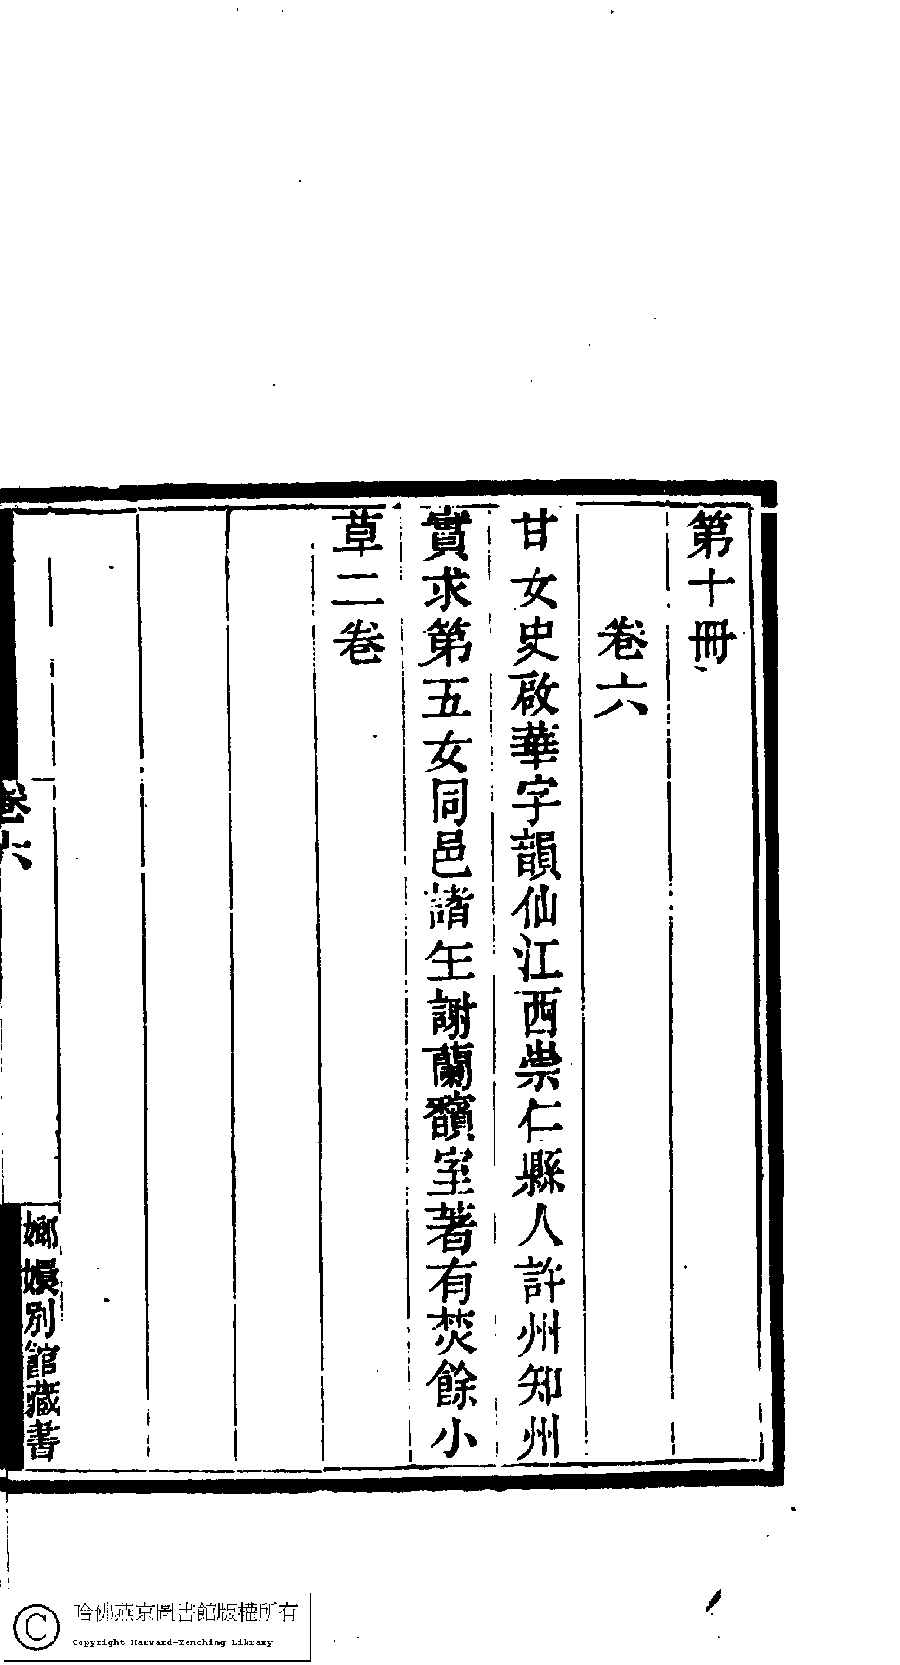 第十冊
卷六
甘女史啟華字韻仙江西崇仁縣人許州知州
實求第五女同邑諸生謝蘭馪室著有焚餘小
草二卷
卷六
嫏嬛別館藏書
哈佛燕京圖書館版權所有
Copyright Harvard-Yenching Library